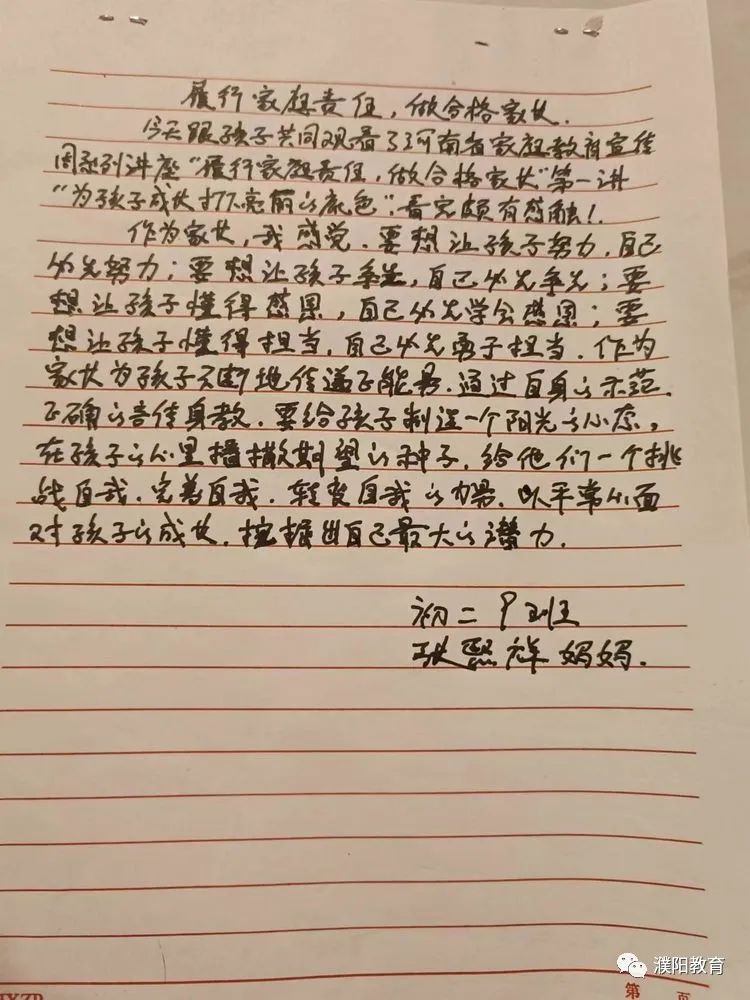 履行家庭责任,做合格家长.
今天跟孩子共同观看了河南省家庭教育宣传
周系列讲座“履行家庭责任,做合格家长”第一讲
“为孩子成长打下亮丽的底色”.看完颇有感触!
作为家长,我感觉.要想让孩子努力,自己
必先努力;要想让孩子争先,自己必先争先;要
想让孩子懂得感恩,自己必先学会感恩;要
想让孩子懂得担当,自己必先勇于担当.作为
家长为孩子不断地传递正能量.通过自身的示范.
正确的言传身教.要给孩子制造一个阳光的心态,
在孩子的心里播撒期望的种子.给他们一个挑
战自我.完善自我.转变自我的力量.以平常心面
对孩子的成长.挖掘出自己最大的潜力.
初二 班
张熙祥妈妈.
濮阳教育
第 页